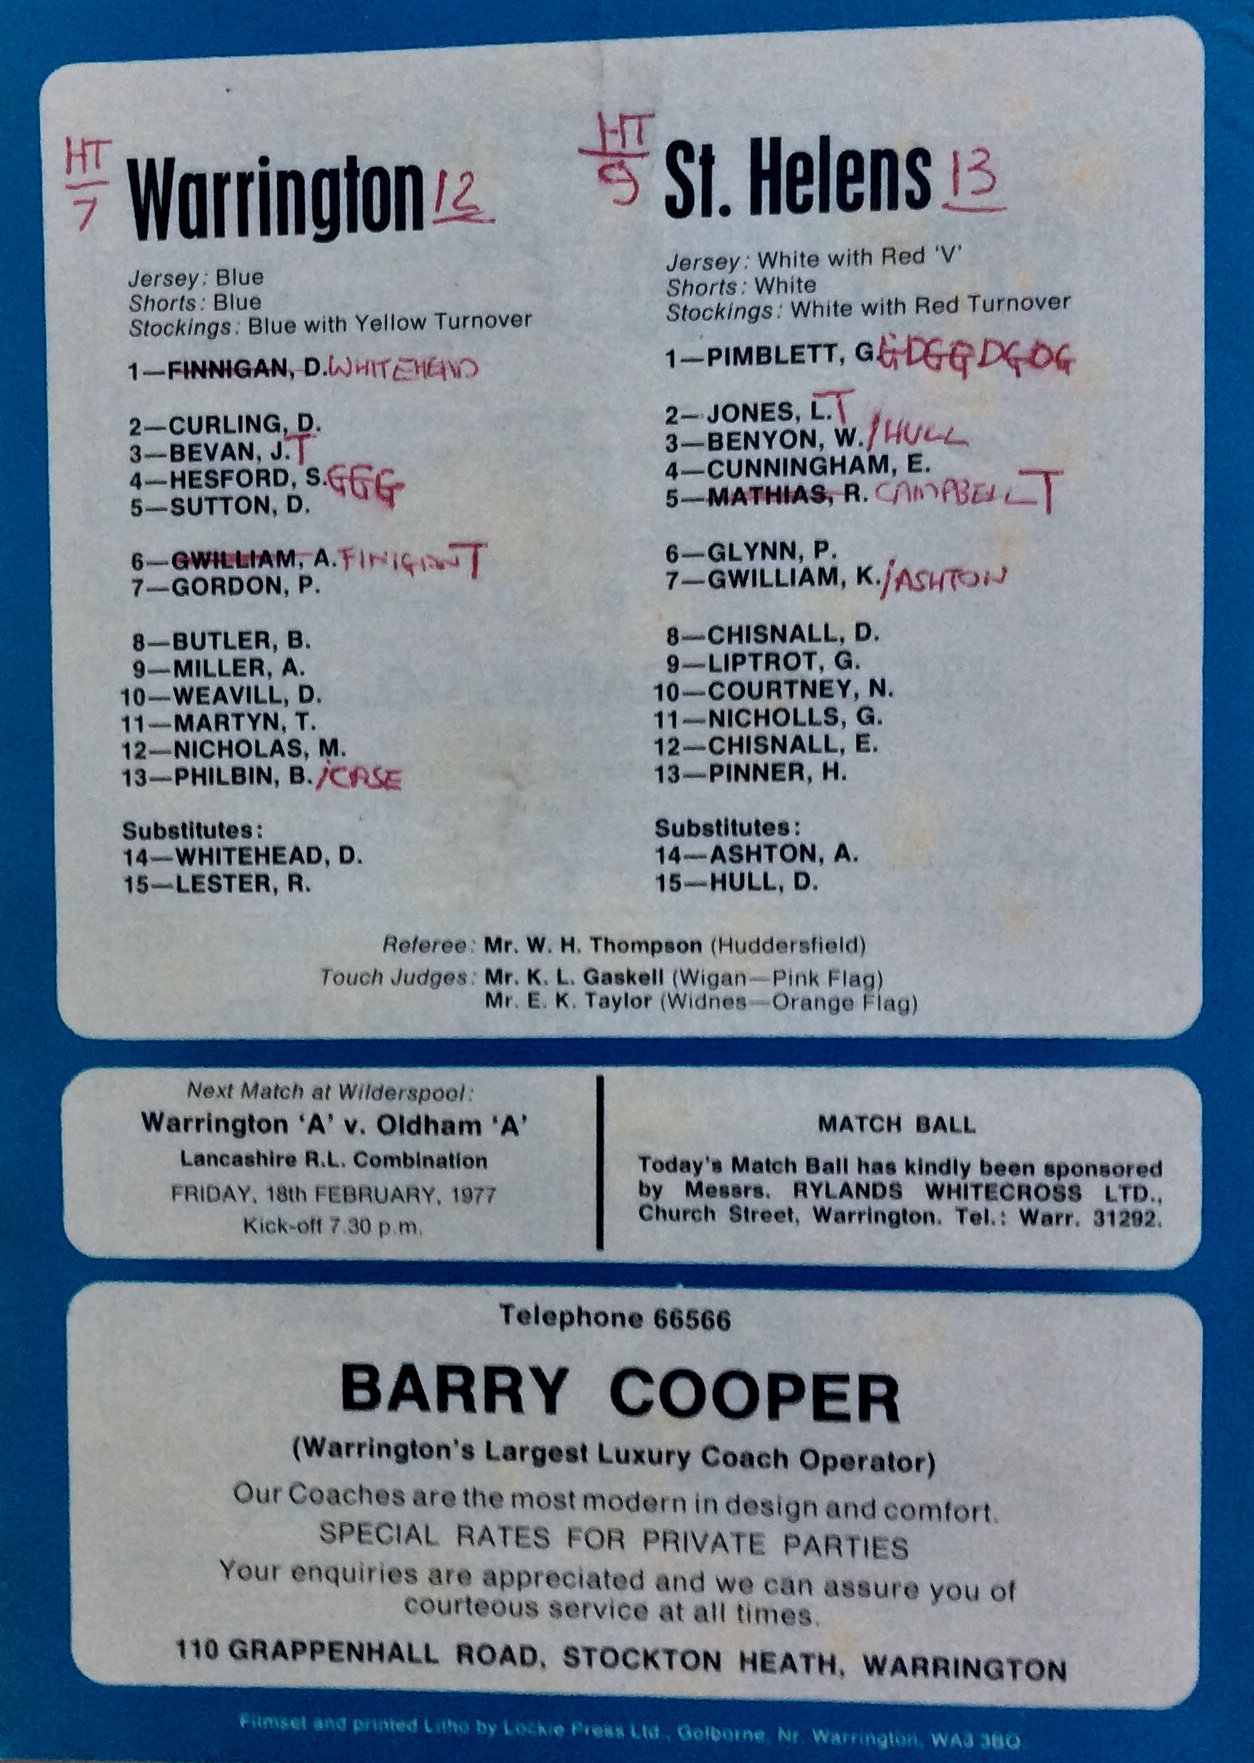 HT
7
Warrington 12
Jersey: Blue
Shorts: Blue
Stockings: Blue with Yellow Turnover
1—FINNIGAN, D. WHITEHEAD
2—CURLING, D.
3—BEVAN, J. T
4—HESFORD, S. GGG
5—SUTTON, D.
6—GWILLIAM, A. T
7—GORDON, P.
8—BUTLER, B.
9—MILLER, A.
10—WEAVILL, D.
11—MARTYN, T.
12—NICHOLAS, M.
13—PHILBIN, B. /CASE
Substitutes:
14—WHITEHEAD, D.
15—LESTER, R.
HT
9
St. Helens 13
Jersey: White with Red 'V'
Shorts: White
Stockings: White with Red Turnover
1—PIMBLETT, G.
2—JONES, L. T
3—BENYON, W. /HULL
4—CUNNINGHAM, E.
5—MATHIAS, R. CAMPBELL T
6—GLYNN, P.
7—GWILLIAM, K. /ASHTON
8—CHISNALL, D.
9—LIPTROT, G.
10—COURTNEY, N.
11—NICHOLLS, G.
12—CHISNALL, E.
13—PINNER, H.
Substitutes:
14—ASHTON, A.
15—HULL, D.
Referee: Mr. W. H. Thompson (Huddersfield)
Touch Judges: Mr. K. L. Gaskell (Wigan—Pink Flag)
Mr. E. K. Taylor (Widnes—Orange Flag)
Next Match at Wilderspool:
Warrington 'A' v. Oldham 'A'
Lancashire R.L. Combination
FRIDAY, 18th FEBRUARY, 1977
Kick-off 7.30 p.m.
MATCH BALL
Today's Match Ball has kindly been sponsored
by Messrs. RYLANDS WHITECROSS LTD.,
Church Street, Warrington. Tel.: Warr. 31292.
Telephone 66566
BARRY COOPER
(Warrington's Largest Luxury Coach Operator)
Our Coaches are the most modern in design and comfort.
SPECIAL RATES FOR PRIVATE PARTIES
Your enquiries are appreciated and we can assure you of
courteous service at all times.
110 GRAPPENHALL ROAD, STOCKTON HEATH, WARRINGTON
Filmset and printed Litho by Lockie Press Ltd., Golborne, Nr. Warrington, WA3 3BQ